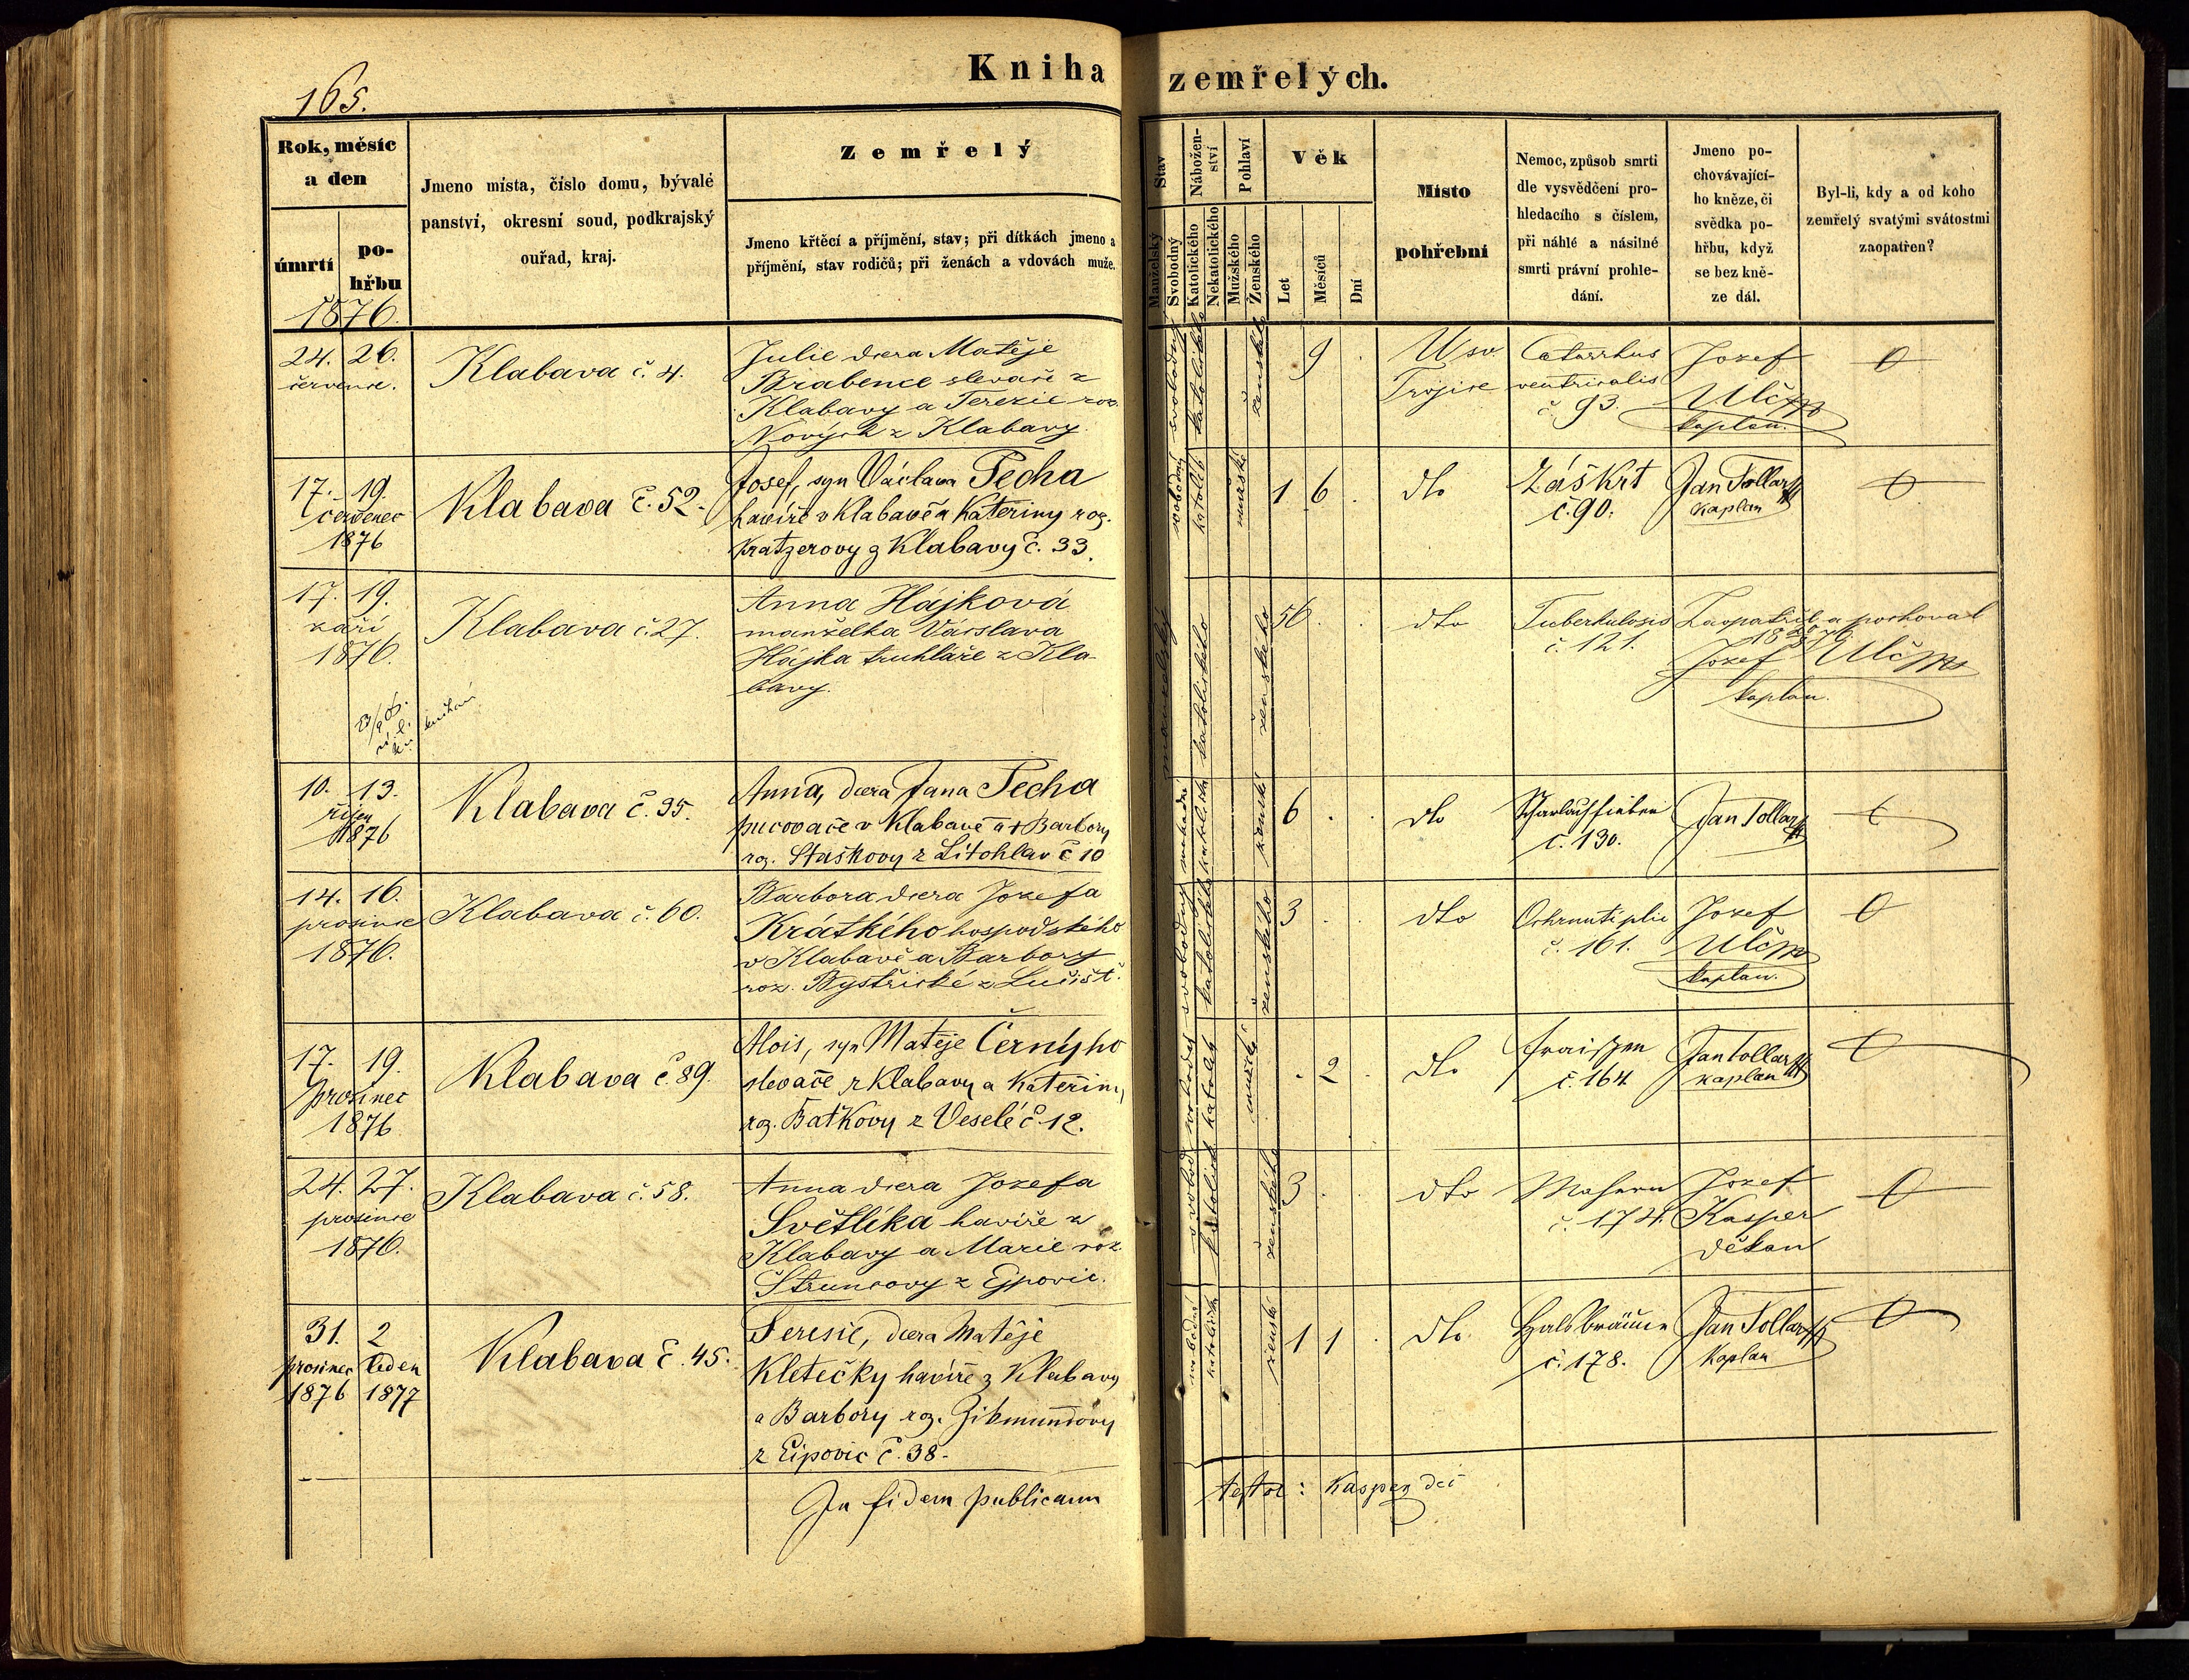 165.
Kniha zemřelých.
Rok, měsíc
a den
úmrtí
po-
hřbu
1876.
Jmeno místa, číslo domu, bývalé
panství, okresní soud, podkrajský
ouřad, kraj.
Zemřelý
Jmeno křtěcí a příjmění, stav; při dítkách jmeno a
příjmění, stav rodičů; při ženách a vdovách muže.
Stav
Manželský
Svobodný
Nábožen-
ství
Katolického
Nekatolického
Pohlaví
Mužského
Ženského
Věk
Let
Měsíců
Dní
Místo
pohřební
Nemoc, způsob smrti
dle vysvědčení pro-
hledacího s číslem,
při náhlé a násilné
smrti právní prohle-
dání.
Jmeno po-
chovávající-
ho kněze, či
svědka po-
hřbu, když
se bez kně-
ze dál.
Byl-li, kdy a od koho
zemřelý svatými svátostmi
zaopatřen?
24. 26.
července.
Klabava č. 4.
Julie dcera Matěje
Brabence slevače z
Klabavy a Terezie roz.
Nových z Klabavy.
svobodný
katolického
ženského
9
U sv.
Trojice
Catarrhus
ventricalis
č. 93.
Jozef
Ulč
kaplan.
17. 19.
červenec
1876
Klabava č. 52.
Josef, syn Václava Pecha
havíře v Klabavě a Kateřiny roz.
Kratzerovy z Klabavy č. 33.
svobodný
katolík
mužské
1 6
dto
Záškrt
č. 90.
Jan Tollar
Kaplan
17. 19.
září
1876.
Klabava č. 27.
Anna Hájková
manželka Václava
Hájka truhláře z Kla-
bavy.
manželský
katolického
ženského
56.
dto
Tuberkulosis
č. 121.
Zaopatřil a pochoval
Jozef Ulč
kaplan.
10. 13.
říjen
1876
Klabava č. 35.
Anna, dcera Jana Pecha
pucovače v Klabavě a † Barbory
roz. Staškovy z Litohlav č 10
ženské
6
dto
Scharlachfieber
č. 130.
Jan Tollar
14. 16.
prosince
1876.
Klabava č. 60.
Barbora dcera Jozefa
Krátkého hospodského
v Klabavě a Barbory
roz. Bystřické z Lučišť.
svobodný
katolického
ženského
3
dto
Ochrnutí plic
č. 161.
Jozef
Ulč
kaplan.
17. 19.
Prosinec
1876
Klabava č. 89.
Alois, syn Matěje Černýho
slevače z Klabavy a Kateřiny
roz. Baťkovy z Veselé č. 12.
katolík
mužské
2
dto
Fraisen
č. 164
Jan Tollar
kaplan
24. 27.
prosince
1876.
Klabava č. 58.
Anna dcera Jozefa
Světlíka havíře z
Klabavy a Marie roz.
Štruncovy z Ejpovic.
ženského
3
dto
Masern
č. 174.
Jozef
Kasper
děkan
31. 2
prosinec leden
1876 1877
Klabava č. 45.
Teresie, dcera Matěje
Kletečky havíře z Klabavy
a Barbory roz. Zikmundovy
z Eipovic č. 38.
svobodné
ženské
1 1
dto
Halsbräune
č. 178.
Jan Tollar
Kaplan
In fidem publicam
testor: Kasper děk